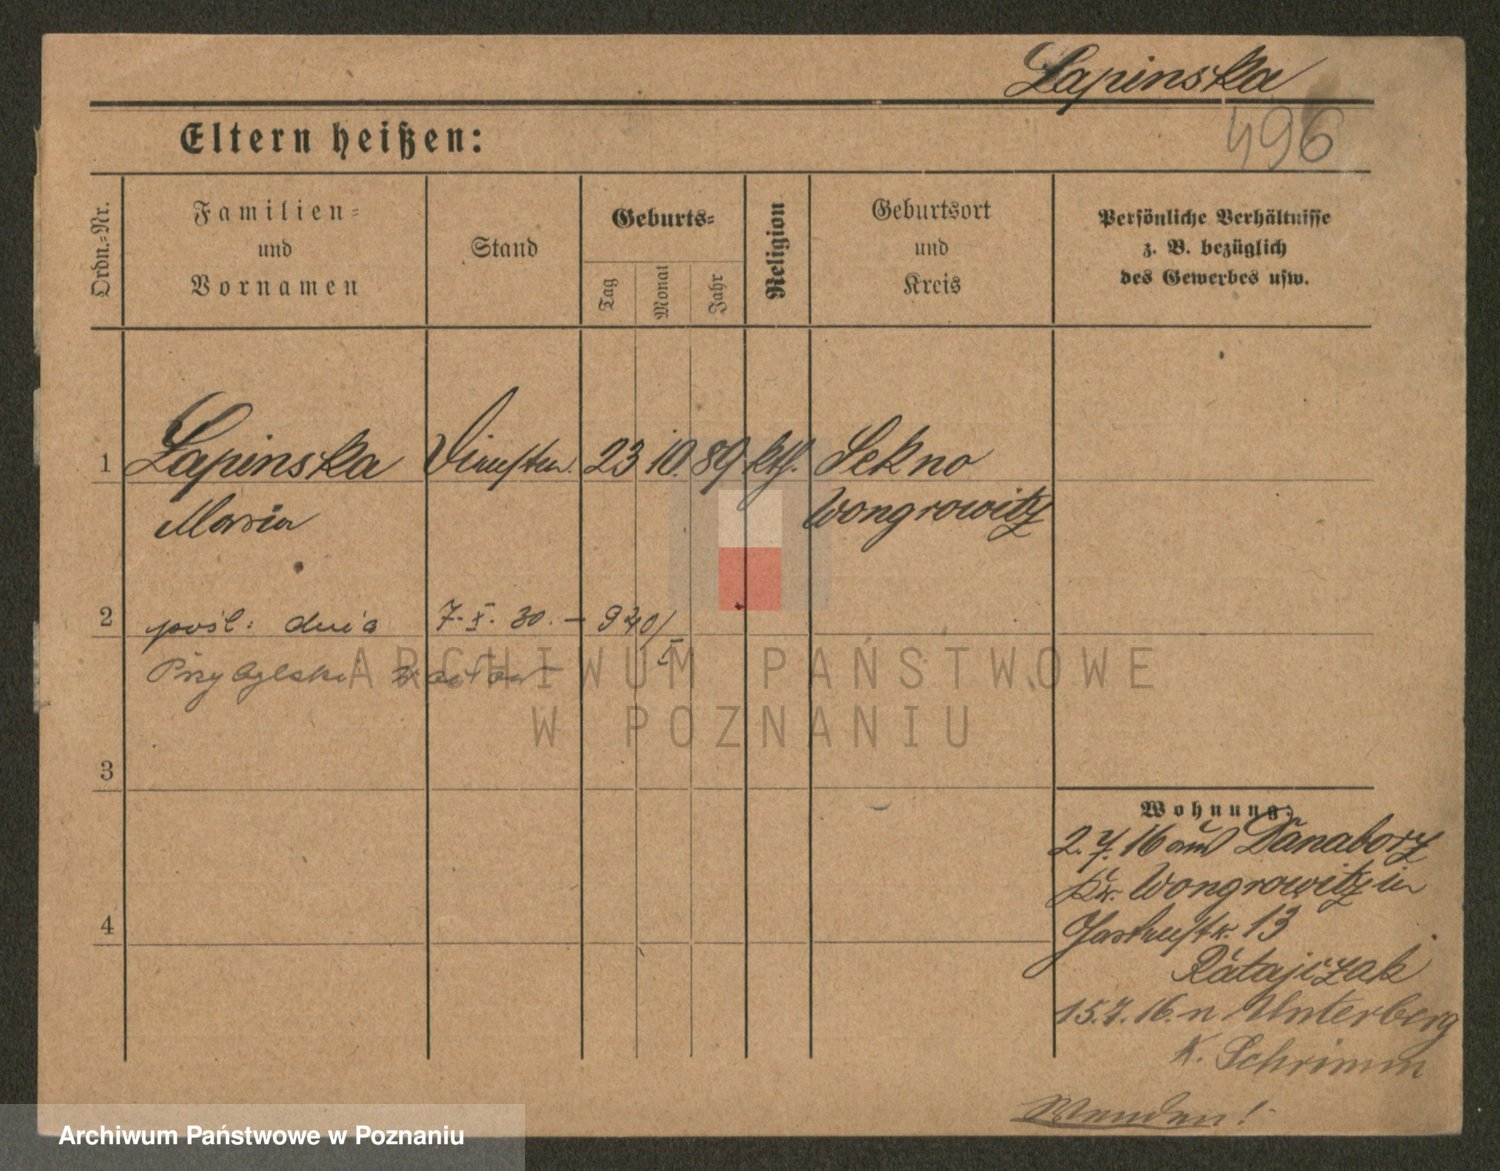 Lapinska
496
Eltern heißen:
Ordn.=Nr.
Familien=
und
Vornamen
Stand
Geburts=
Tag
Monat
Jahr
Religion
Geburtsort
und
Kreis
Persönliche Verhältnisse
z. B. bezüglich
des Gewerbes usw.
1 Lapinska Dienstm. 23 10. 89 kth. Sekno
Maria Wongrowitz
2 pośl: dnia 7. X. 30. – 940/I
Przybylski
3
4
Wohnung:
2. 7. 16 aus Danaborz
Kr. Wongrowitz in
13
Ratajczak
15. 7. 16. n Unterberg
K. Schrimm
Wenden!
ARCHIWUM PAŃSTWOWE
W POZNANIU
Archiwum Państwowe w Poznaniu